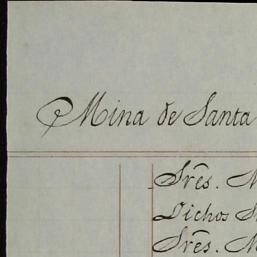 Mina de Santa
Srēs. M
Dichos S
Srēs. M